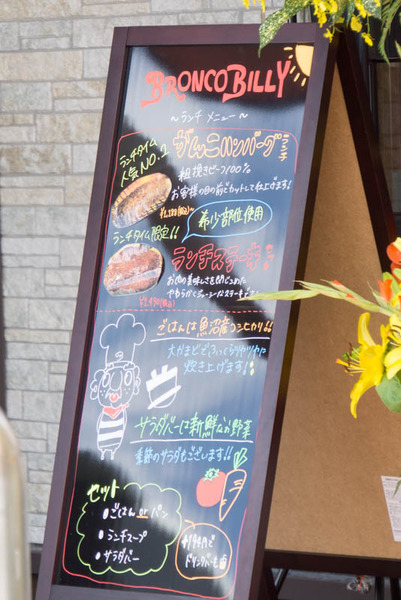 BRONCO BILLY
～ランチ メニュー～
ランチタイム
人気NO.1
がんこハンバーグ
ランチ
粗挽きビーフ100%
お客様の目の前でカットして仕上げます!
ランチタイム限定!!
希少部位使用
ランチステーキ
お肉の美味しさを閉じこめた
やわらかくジューシーなステーキ
ごはんは魚沼産コシヒカリ!!
大かまどで、ふっくらツヤツヤに
炊き上げます!!
サラダバーは新鮮なお野菜
季節のサラダもございます!!
セット
ごはん or パン
ランチスープ
サラダバー
ドリンクバーも